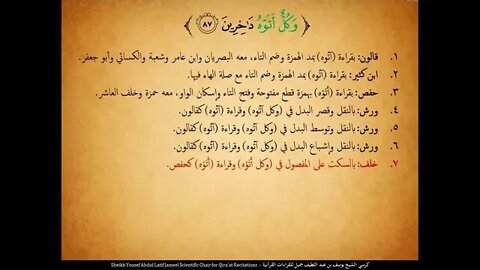 وَكُلٌّ أَتَوْهُ دَاخِرِينَ ﴿٨٧﴾
١. قالون: بقراءة (آتُوه) بمد الهمزة وضم التاء، معه البصريان وابن عامر وشعبة والكسائي وأبو جعفر.
٢. ابن كثير: بقراءة (آتُوه) بمد الهمزة وضم التاء مع صلة الهاء فيها.
٣. حفص: بقراءة (أَتَوْه) بهمزة قطع مفتوحة وفتح التاء وإسكان الواو، معه حمزة وخلف العاشر.
٤. ورش: بالنقل وقصر البدل في (وكل آتُوه) وقراءة (آتُوه) كقالون.
٥. ورش: بالنقل وتوسط البدل في (وكل آتُوه) وقراءة (آتُوه) كقالون.
٦. ورش: بالنقل وإشباع البدل في (وكل آتُوه) وقراءة (آتُوه) كقالون.
٧. خلف: بالسكت على المفصول في (وكل أتوه) وقراءة (أتَوْه) كحفص.
كرسي الشيخ يوسف بن عبد اللطيف جميل للقراءات القرآنية - Sheikh Yousef Abdul Latif Jameel Scientific Chair for Qira'at Recitations